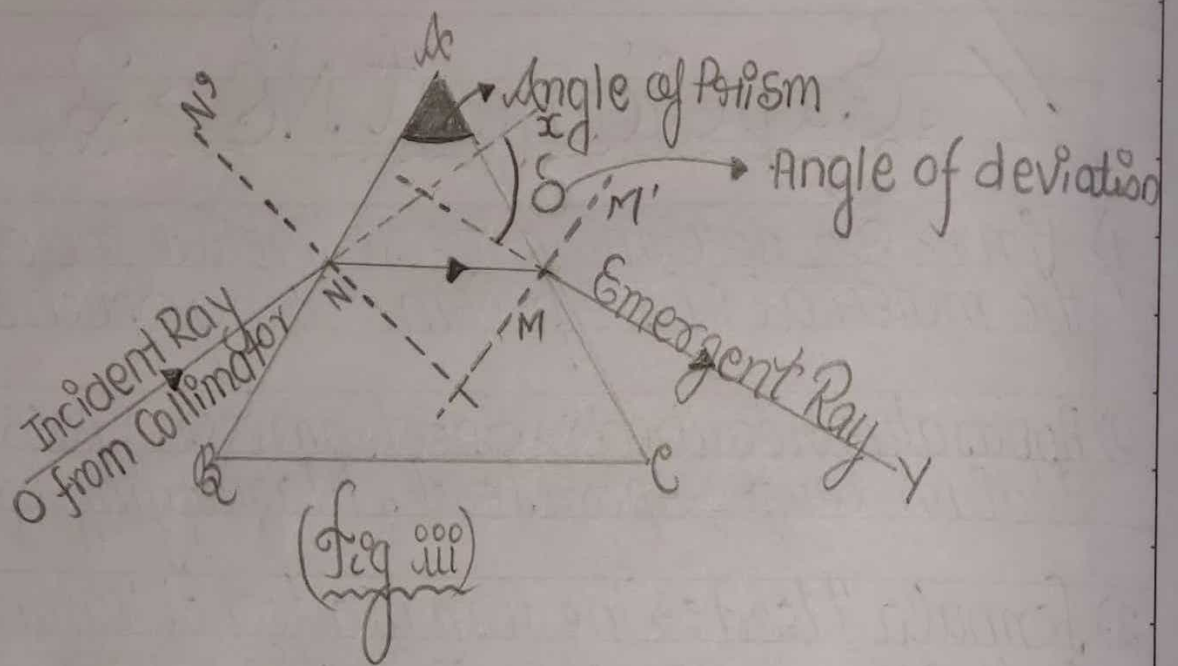 A
Angle of Prism
x
N'
δ
Angle of deviation
M'
N
M
Incident Ray
O from Collimator
Emergent Ray
Y
B
C
(Fig iii)